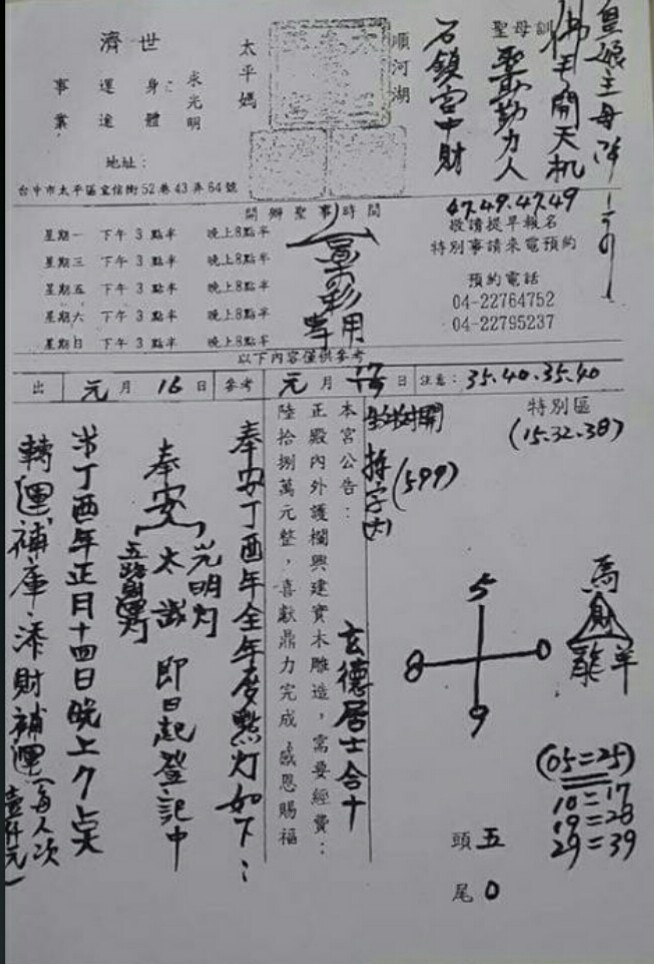 皇娘主母降
佛手開天机
聖母訓
聖示勤力人
石鎮宮中財
順河湖
太平媽
濟世
求光明
身體
運途
事業
地址：
台中市太平區宜信街52巷43弄64號
47.49.47.49
開辦聖事時間
敬請提早報名
特別事請來電預約
預約電話
04-22764752
04-22795237
星期一 下午 3 點半 晚上8點半
星期三 下午 3 點半 晚上8點半
星期五 下午 3 點半 晚上8點半
星期六 下午 3 點半 晚上8點半
星期日 下午 3 點半 晚上8點半
景彩
專用
以下內容僅供參考
出 元月 16 日 參考 元月 日 注意：35.40.35.40
特別區
(15.32.38)
(599)
本宮公告：
正殿內外護欄興建實木雕造，需要經費：
陸拾捌萬元整，喜獻鼎力完成，感恩賜福
玄德居士合十
奉安丁酉年全年度點灯如下：
奉安
光明灯
太歲
即日起登記中
丁酉年正月十四日晚上7点
轉運補庫．添財補運（每人次
壹仟元）
5
8 0
9
馬
財
龍 羊
(05=25)
10=17
19=28
29=39
頭 五
尾 0